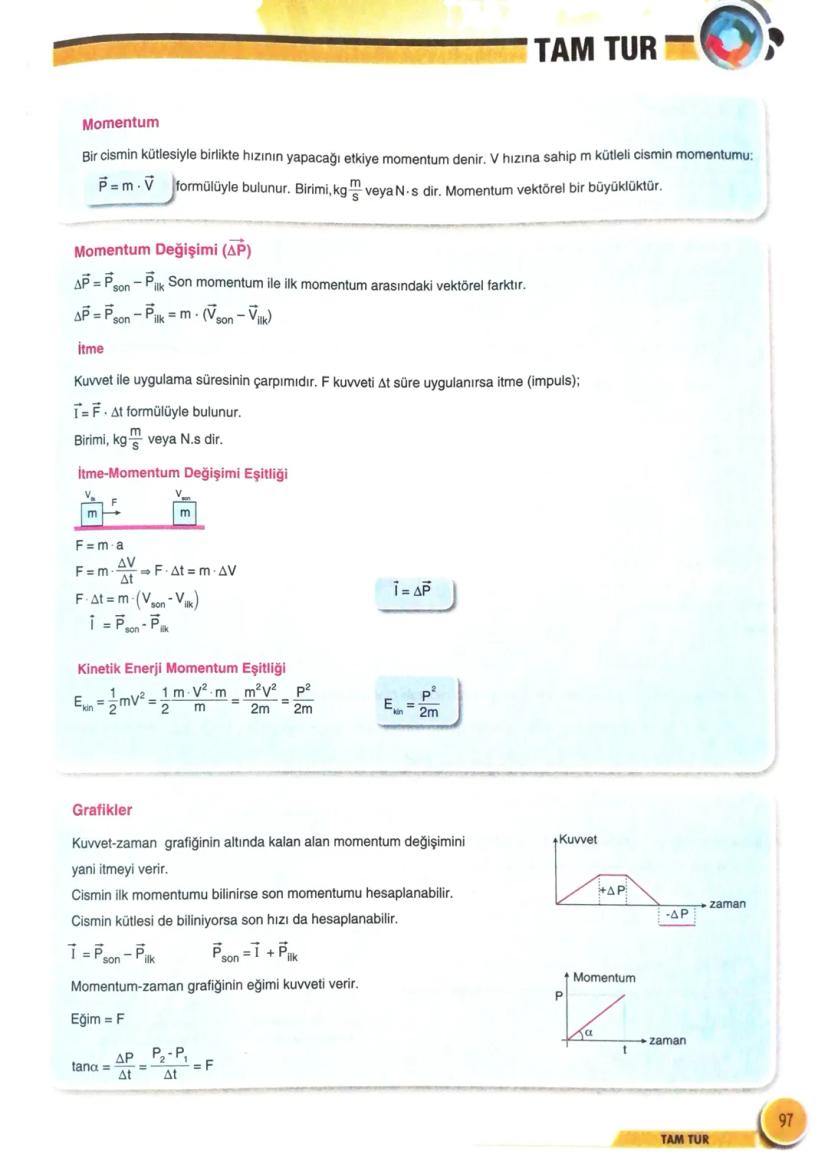 TAM TUR
Momentum
Bir cismin kütlesiyle birlikte hızının yapacağı etkiye momentum denir. V hızına sahip m kütleli cismin momentumu:
P⃗ = m · V⃗ formülüyle bulunur. Birimi, kg m/s veya N·s dir. Momentum vektörel bir büyüklüktür.
Momentum Değişimi (ΔP⃗)
ΔP⃗ = P⃗son − P⃗ilk Son momentum ile ilk momentum arasındaki vektörel farktır.
ΔP⃗ = P⃗son − P⃗ilk = m · (V⃗son − V⃗ilk)
İtme
Kuvvet ile uygulama süresinin çarpımıdır. F kuvveti Δt süre uygulanırsa itme (impuls);
I⃗ = F⃗ · Δt formülüyle bulunur.
Birimi, kg m/s veya N.s dir.
İtme-Momentum Değişimi Eşitliği
Vilk F Vson
m m
F = m·a
F = m · ΔV/Δt ⇒ F·Δt = m·ΔV
F·Δt = m·(Vson - Vilk)
I⃗ = P⃗son - P⃗ilk
I⃗ = ΔP⃗
Kinetik Enerji Momentum Eşitliği
Ekin = 1/2 mV² = 1/2 m·V²·m/m = m²V²/2m = P²/2m
Ekin = P²/2m
Grafikler
Kuvvet-zaman grafiğinin altında kalan alan momentum değişimini
yani itmeyi verir.
Cismin ilk momentumu bilinirse son momentumu hesaplanabilir.
Cismin kütlesi de biliniyorsa son hızı da hesaplanabilir.
I⃗ = P⃗son − P⃗ilk P⃗son = I⃗ + P⃗ilk
Momentum-zaman grafiğinin eğimi kuvveti verir.
Eğim = F
tanα = ΔP/Δt = P₂-P₁/Δt = F
Kuvvet
+ΔP
zaman
-ΔP
Momentum
P
α
zaman
t
97
TAM TUR